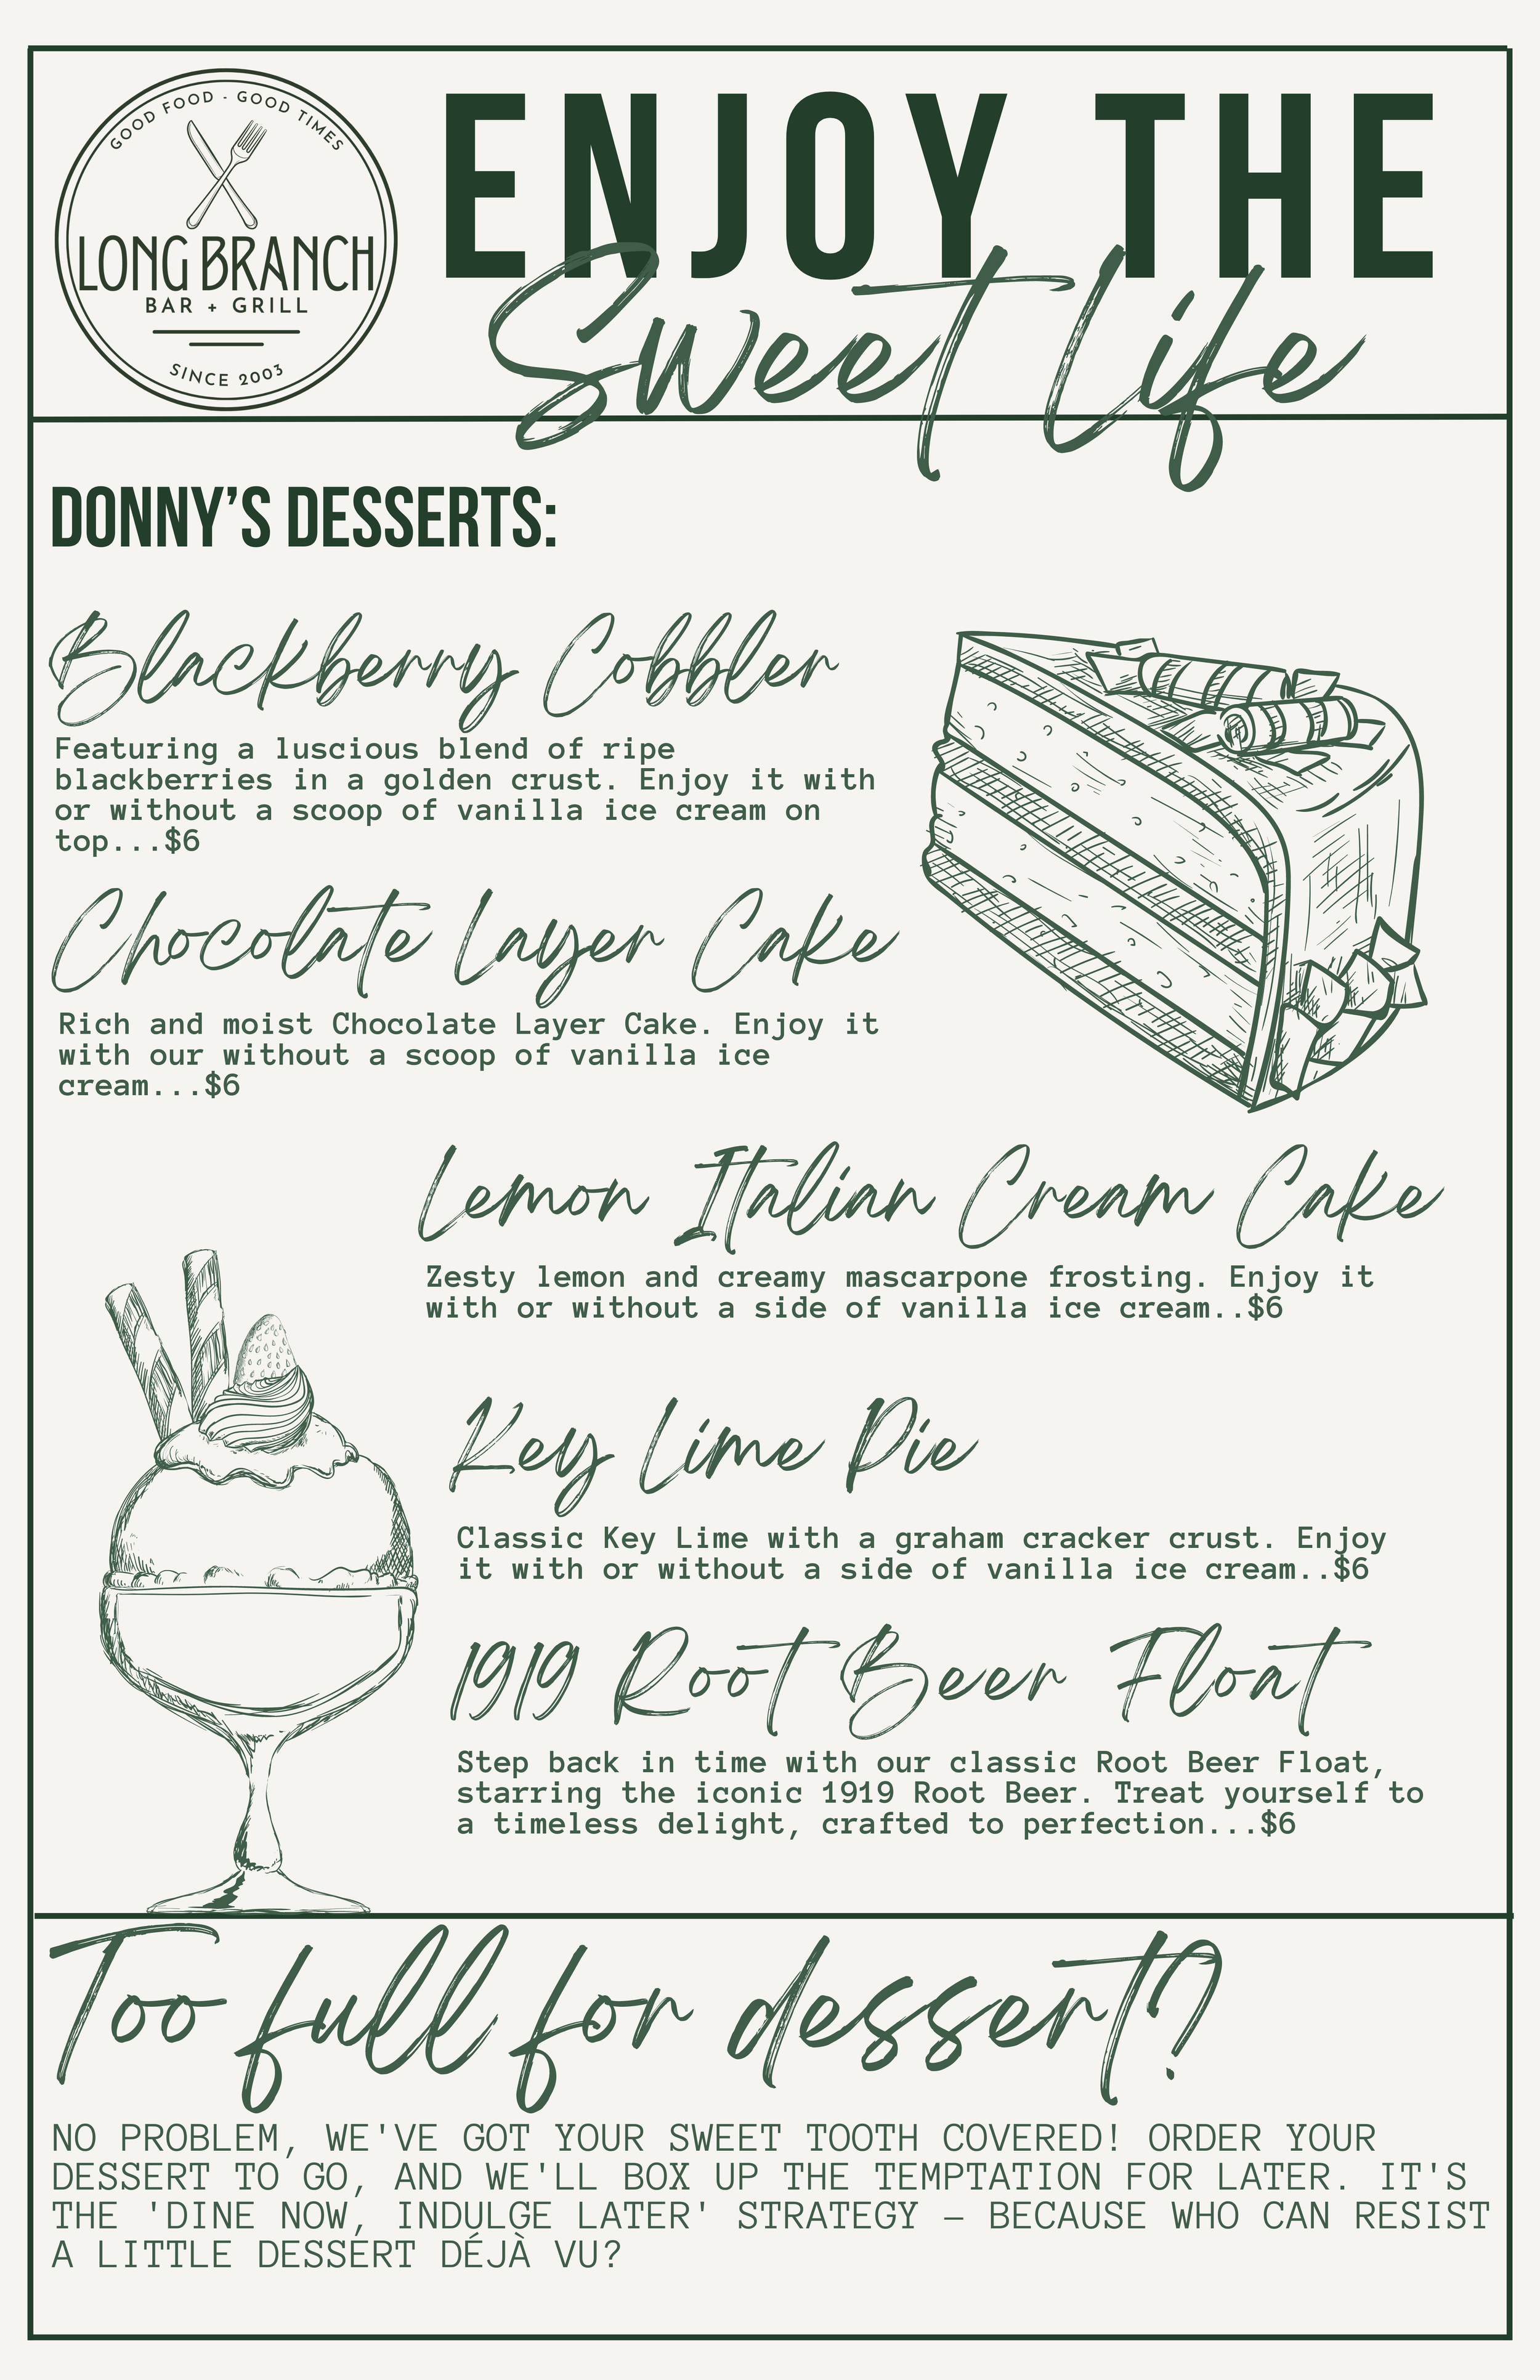 GOOD FOOD - GOOD TIMES
LONG BRANCH
BAR + GRILL
SINCE 2003
ENJOY THE
Sweet Life
DONNY'S DESSERTS:
Blackberry Cobbler
Featuring a luscious blend of ripe
blackberries in a golden crust. Enjoy it with
or without a scoop of vanilla ice cream on
top...$6
Chocolate Layer Cake
Rich and moist Chocolate Layer Cake. Enjoy it
with our without a scoop of vanilla ice
cream...$6
Lemon Italian Cream Cake
Zesty lemon and creamy mascarpone frosting. Enjoy it
with or without a side of vanilla ice cream..$6
Key Lime Pie
Classic Key Lime with a graham cracker crust. Enjoy
it with or without a side of vanilla ice cream..$6
1919 Root Beer Float
Step back in time with our classic Root Beer Float,
starring the iconic 1919 Root Beer. Treat yourself to
a timeless delight, crafted to perfection...$6
Too full for dessert?
NO PROBLEM, WE'VE GOT YOUR SWEET TOOTH COVERED! ORDER YOUR
DESSERT TO GO, AND WE'LL BOX UP THE TEMPTATION FOR LATER. IT'S
THE 'DINE NOW, INDULGE LATER' STRATEGY – BECAUSE WHO CAN RESIST
A LITTLE DESSERT DÉJÀ VU?